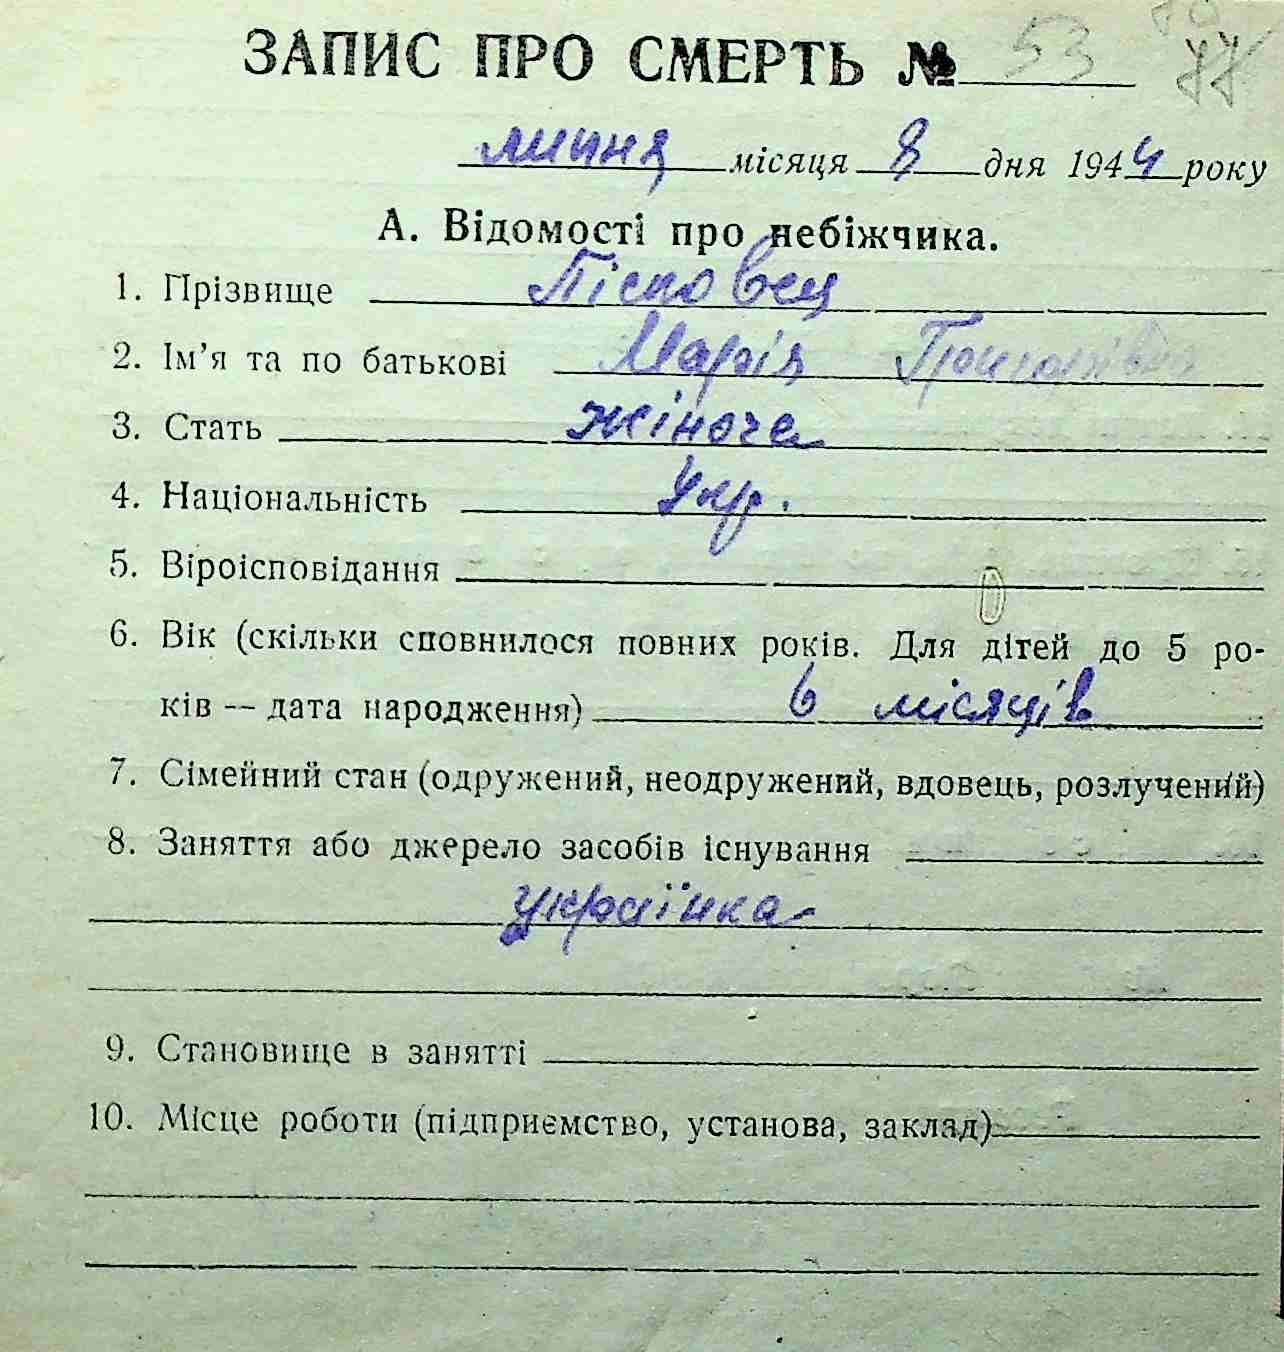 ЗАПИС ПРО СМЕРТЬ № 53 77
липня місяця 8 дня 1944 року
А. Відомості про небіжчика.
1. Прізвище Пісковец
2. Ім'я та по батькові Марія
3. Стать жіноча
4. Національність Укр.
5. Віроісповідання
6. Вік (скільки сповнилося повних років. Для дітей до 5 ро-
ків — дата народження) 6 місяців
7. Сімейний стан (одружений, неодружений, вдовець, розлучений)
8. Заняття або джерело засобів існування
українка
9. Становище в занятті
10. Місце роботи (підприємство, установа, заклад)